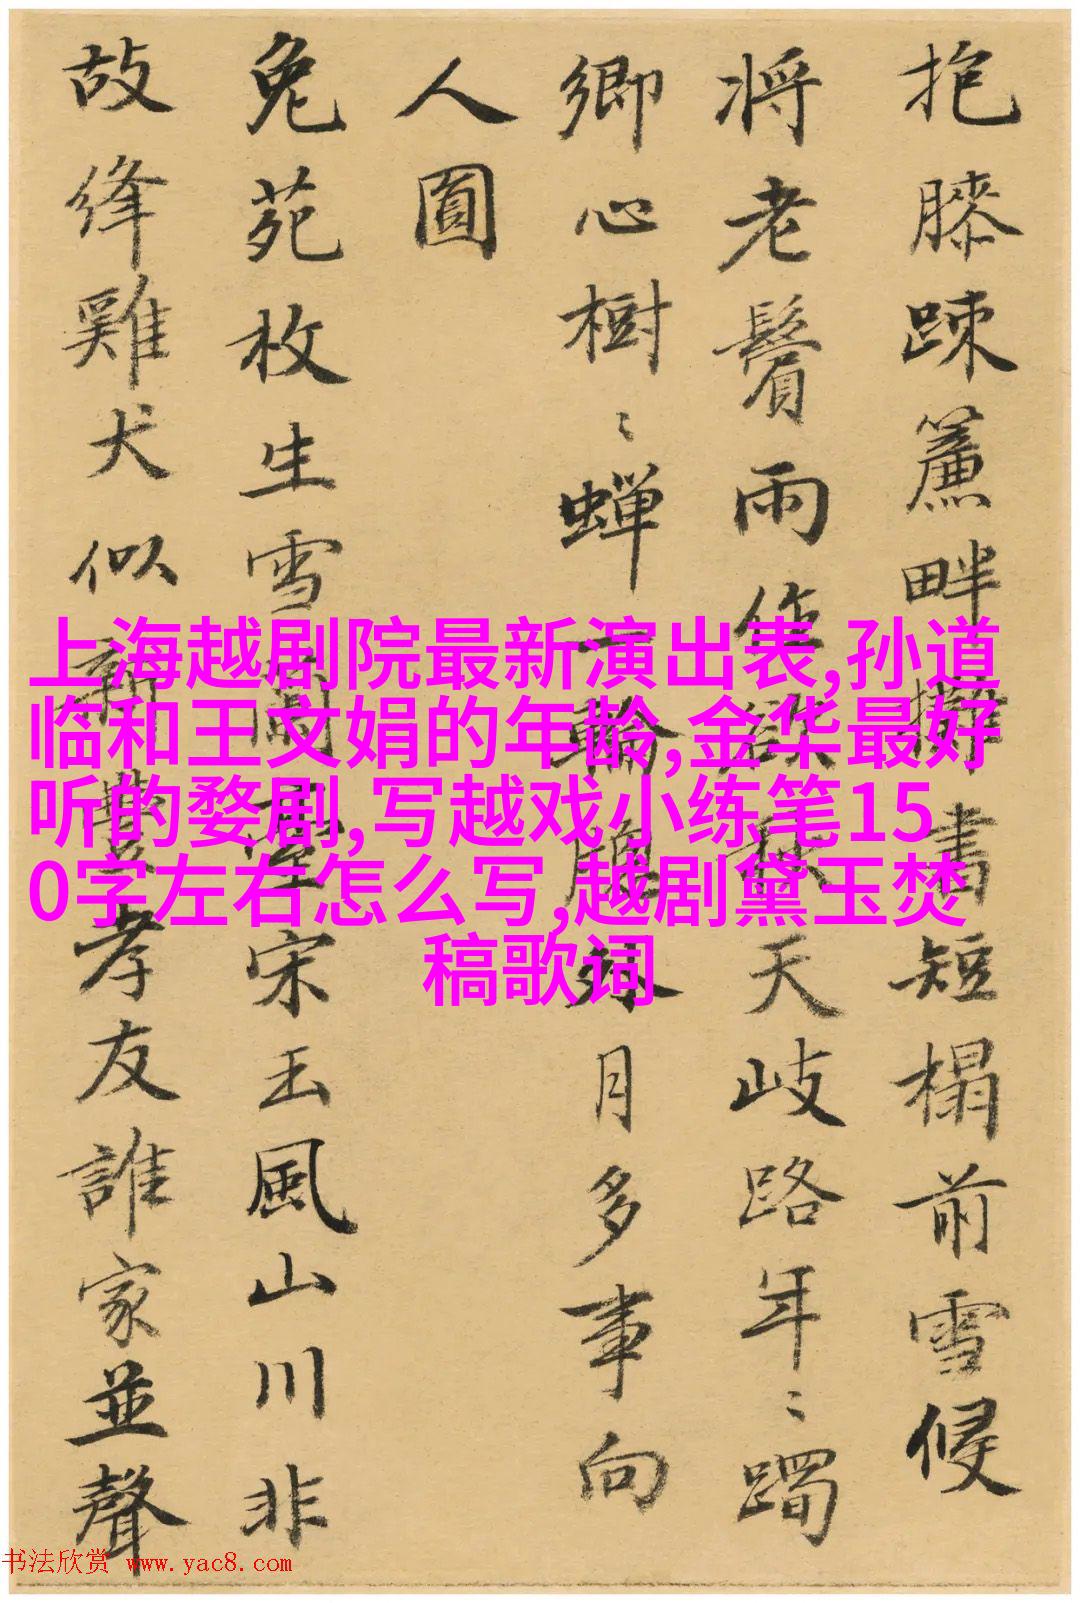 抱膝踈簾畔書短榻前雪候
将老鬢雨作天岐路年〻躅
卿心樹〻蟬一輪月多事向
人圓
兔苑枚生雪宋玉風山川非
故絳雞犬似新豐孝友誰家並聲
上海越剧院最新演出表,孙道
临和王文娟的年龄,金华最好
听的婺剧,写越戏小练笔15
0字左右怎么写,越剧黛玉焚
稿歌词
书法欣赏 www.yac8.com